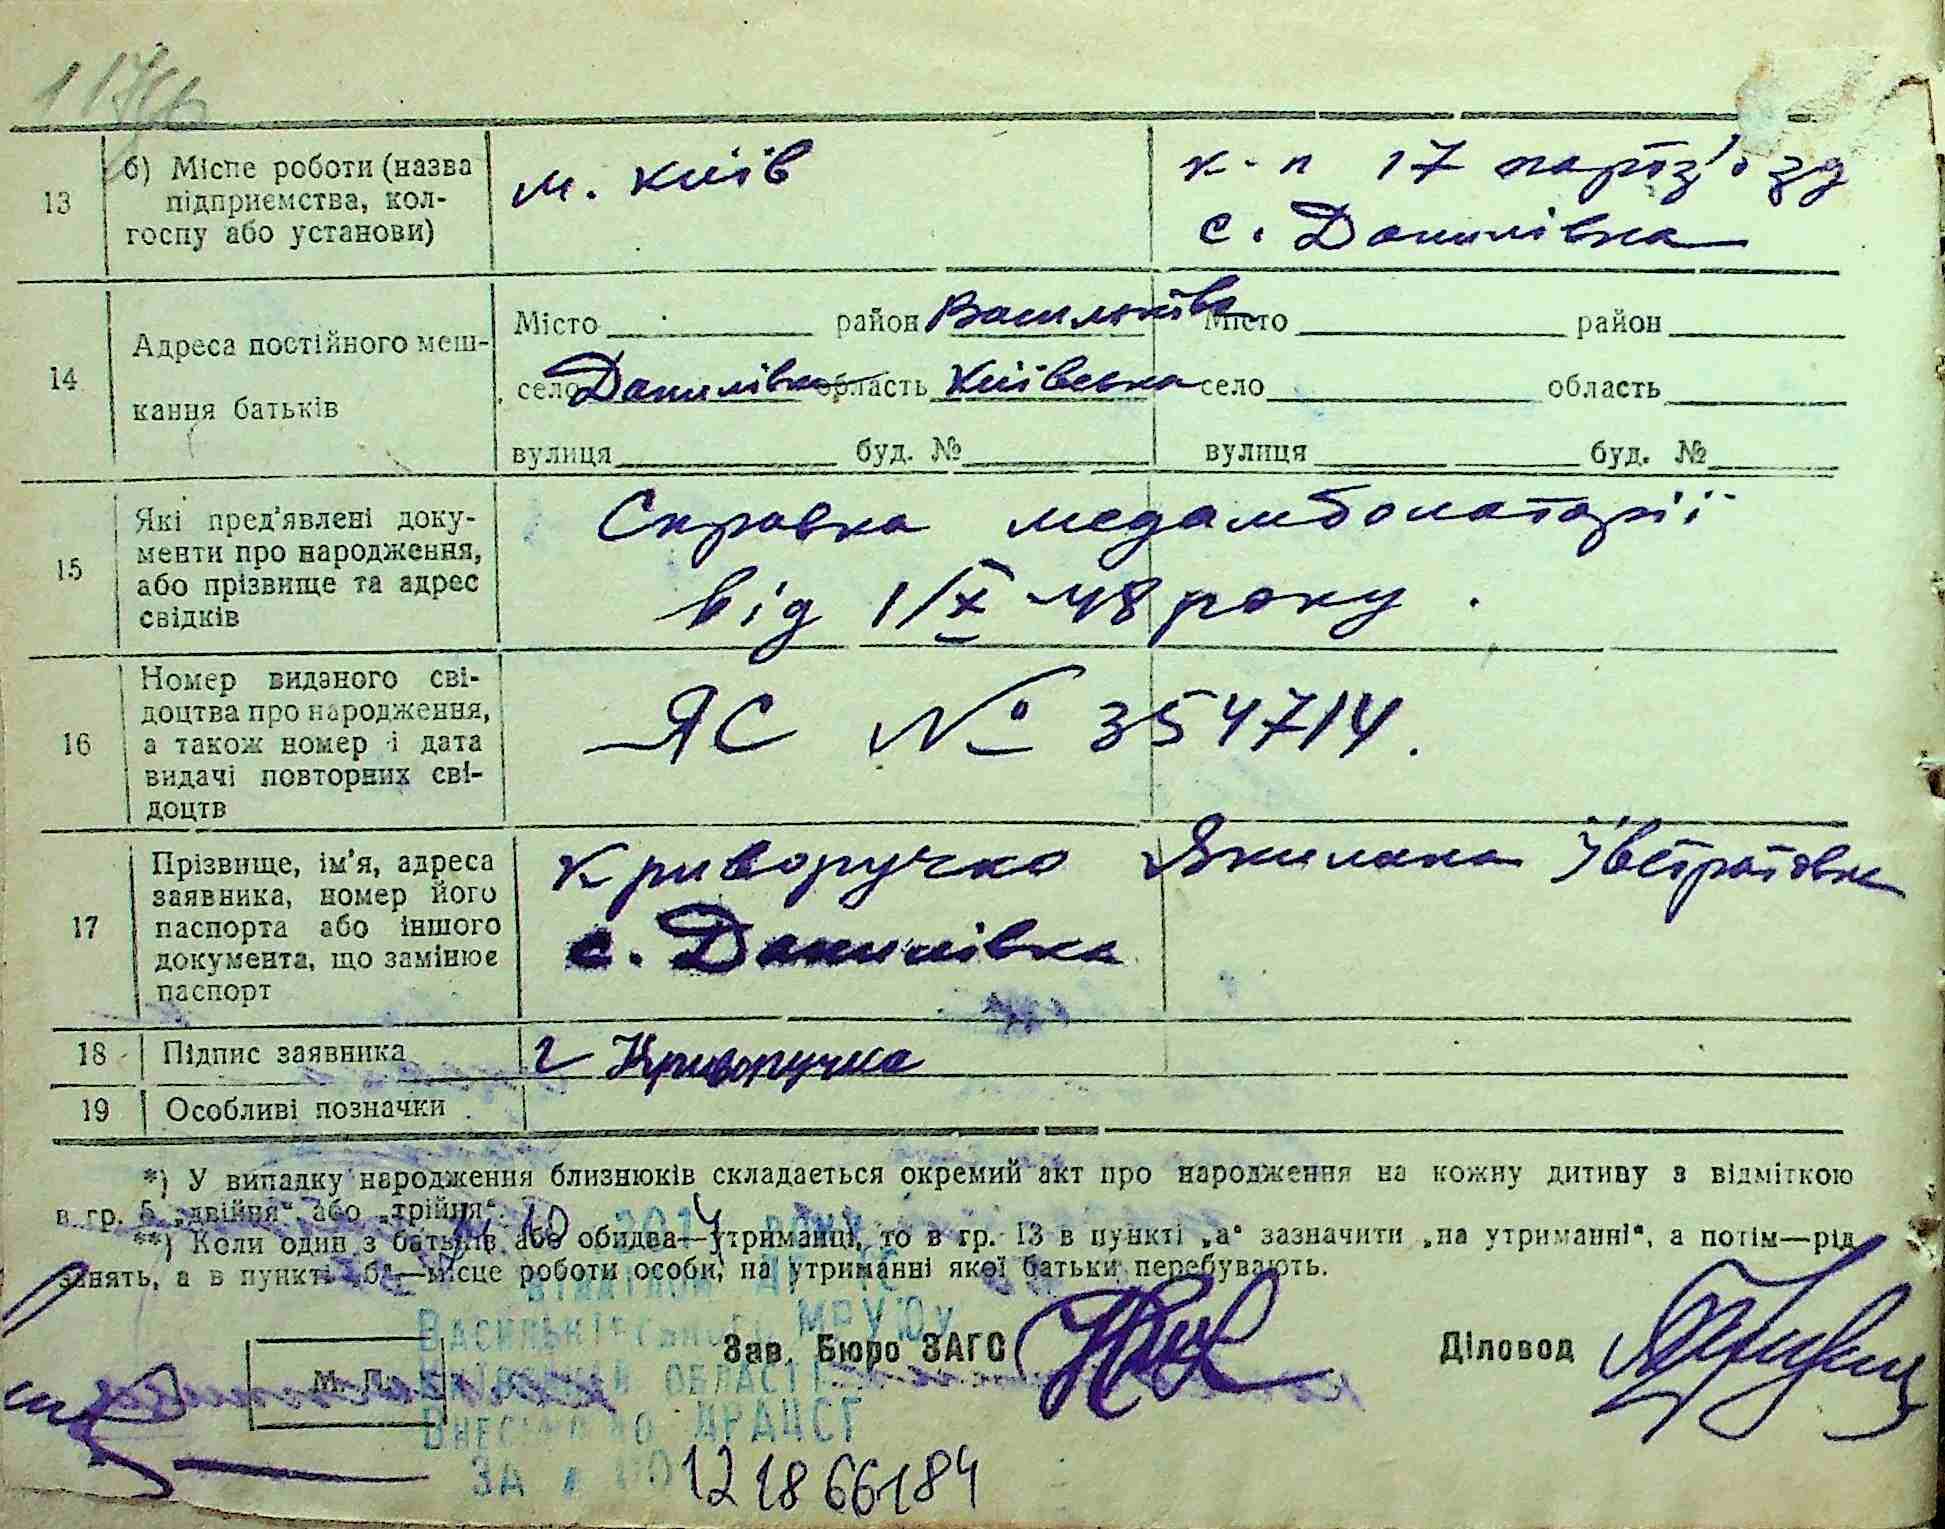 13 б) Місце роботи (назва підприємства, колгоспу або установи) м. Київ к-п 17 партз'їзд
с. Данилівка
14 Адреса постійного мешкання батьків
Місто район Васильків Місто район
село Данилівка область Київська село область
вулиця буд. № вулиця буд. №
15 Які пред'явлені документи про народження, або прізвище та адрес свідків
Справка медамболаторії
від 1/X-48 року.
16 Номер виданого свідоцтва про народження, а також номер і дата видачі повторних свідоцтв
ЯС № 354714.
17 Прізвище, ім'я, адреса заявника, номер його паспорта або іншого документа, що замінює паспорт
Криворучко Якилина
с. Данилівка
18 Підпис заявника Криворучка
19 Особливі позначки
*) У випадку народження близнюків складається окремий акт про народження на кожну дитину з відміткою
в гр. 5 „двійня“ або „трійня“.
**) Коли один з батьків або обидва—утриманці, то в гр. 13 в пункті „а“ зазначити „на утриманні“, а потім—рід
занять, а в пункті „б“—місце роботи особи, на утриманні якої батьки перебувають.
Васильківського МРУЮ
Зав. Бюро ЗАГС Діловод
М. П.
Київській області
Внесено до ДРАЦСГ
ЗА № 00121866184